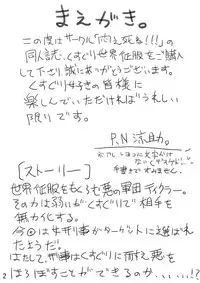 まえがき。
この度はサークル「悶え死ね!!!」の
同人誌、くすぐり世界征服をご購入
して下さり誠にありがとうございます。
くすぐり好きの皆様に
楽しんでいただければうれしい
限りです。
P.N 涼助。
手書きですみません。
[ストーリー]
世界征服をもくろむ悪の軍団ティクラー。
その力は弱いがくすぐりで相手を
無力化する。
今回は女刑事がターゲットに選ばれ
たようだ。
はたして、刑事はくすぐりに耐え、悪を
ほろぼすことができるのか……!?
2